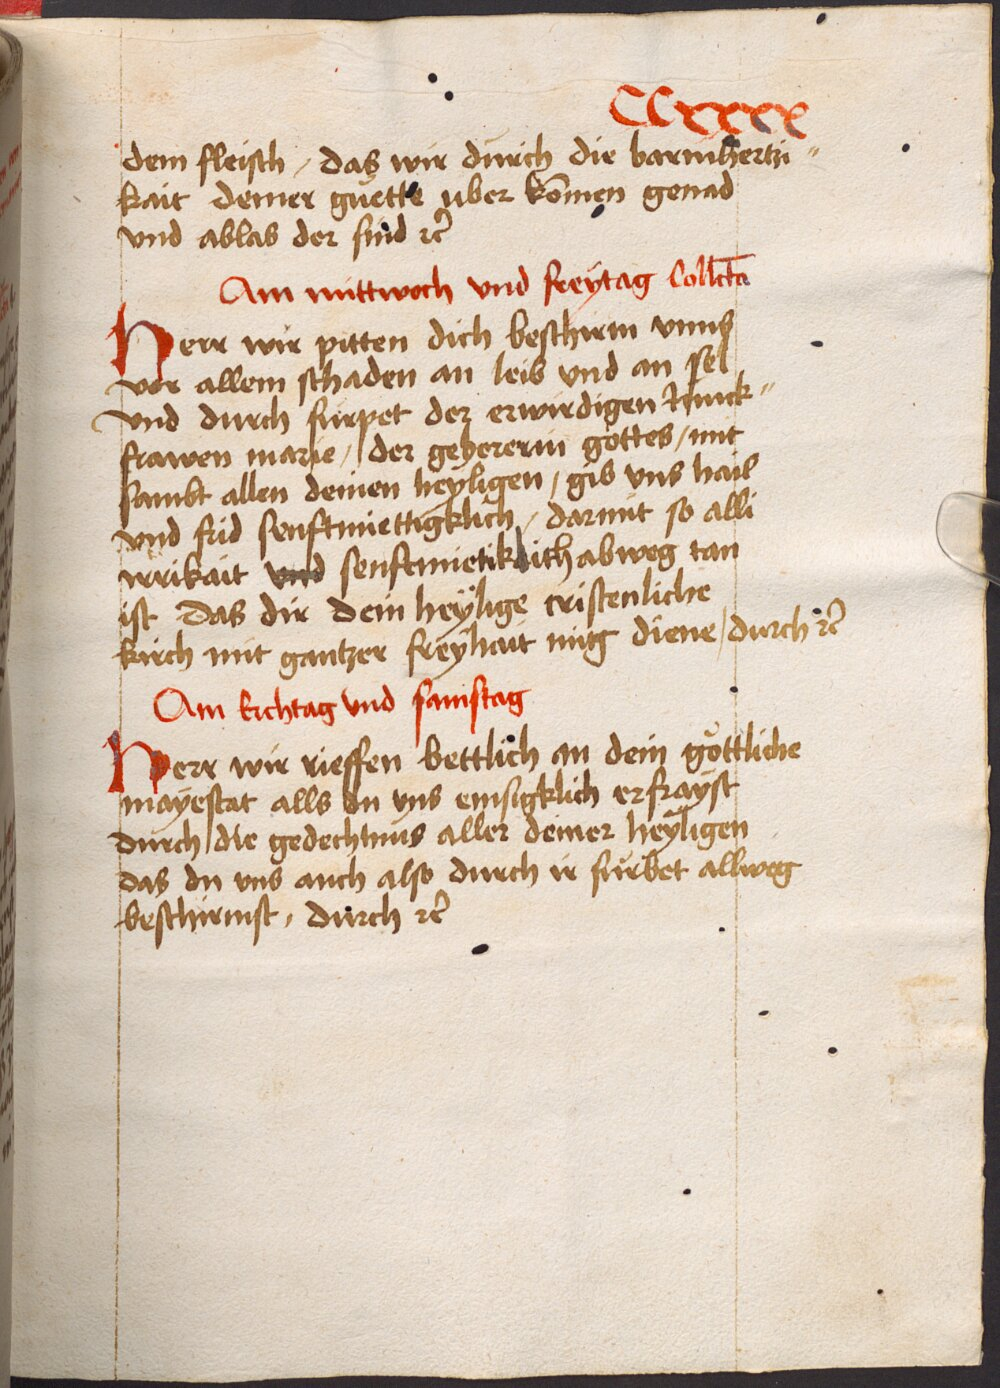 CLxxxx
dein fleisch / das wir durch die barmhertzi〃
kait deiner guette uber kōmen genad
vnd ablas der sünd ꝛc̄
Am mittwoch vnd freÿtag Collcta
Herr wir pitten dich beschirm vnns
vor allem schaden an leib vnd an sel
vnd durch fürpet der erwirdigen Junck〃
frawen marie / der gepererin gottes / mit
sambt allen deinen heÿligen / gib vns hail
vnd frid senftmiettigklich / darmit so alli
irrikait vnd senftmietikleich abweg tan
ist das dir dein heÿlige cristenliche
kirch mit gantzer freÿhait müg diene / durch ꝛc̄
Am Erchtag vnd samstag
Herr wir rieffen bettlich an dein göttliche
mayestat alls du vns emsigklich erfrayst
durch die gedechtnus aller deiner heÿligen
das du vns auch also durch ir fürbet allweg
beschirmst / durch ꝛc̄